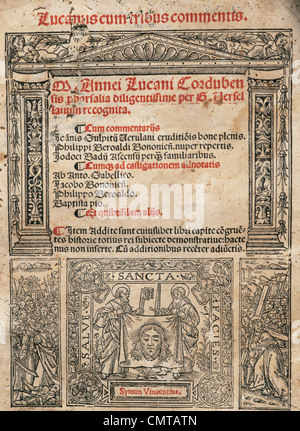 Lucanus cum tribus commentis.
M. Annei Lucani Corduben
sis pharsalia diligentissime per G. Versel
lanum recognita.
Cum commentariis
Joānis Sulpitij Verulani eruditiōis bone plenis.
Philippi Beroaldi Bononieñ. nuper repertis.
Jodoci Badij Ascensij perq̃ familiaribus.
Cumq̃ ad castigationem adnotatis
Ab Anto. Sabellico.
Jacobo Bononieñ.
Philippo Beroaldo.
Baptista pio.
Et quibusdam aliis.
Item Addite sunt cuiuslibet libri capite cōgruē-
tes historie totius rei subiecte demonstratiue: hacte
nus non inserte. Cū additionibus recēter adiectis.
SALVE SANCTA FACIES
Symon Vincentius.
alamy
CMTATN
www.alamy.com